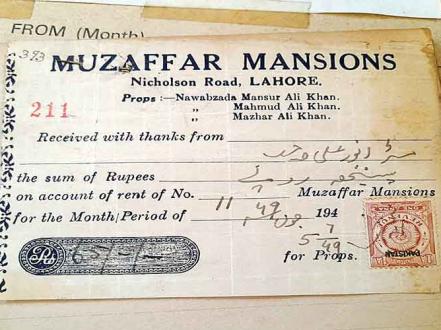 FROM (Month)
393
MUZAFFAR MANSIONS
Nicholson Road, LAHORE.
Props :—Nawabzada Mansur Ali Khan.
„ Mahmud Ali Khan.
„ Mazhar Ali Khan.
211
Received with thanks from
the sum of Rupees
on account of rent of No. 11 Muzaffar Mansions
for the Month/Period of جون 49 194
5/7/49
for Props.
Rs 65/-/-
PAKISTAN